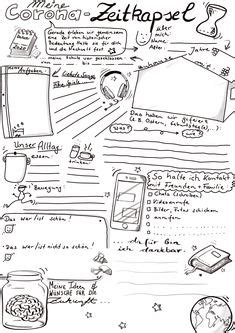 Meine
Corona-Zeitkapsel
Gerade erleben wir gemeinsam
eine Zeit von historischer
Bedeutung. Halte sie für dich
und die Nachwelt fest.
Über
mich
Name:
Alter:
Jahre
Meine Schule war geschlossen
Meine
Aufgaben
Lieblings-
Das haben wir gefeiert
(z.B. Ostern, Geburtstag...)
Was?
Wie?
Unser Alltag
essen
drinnen
Bewegung
So halte ich Kontakt
mit Freunden + Familie:
Chats (schreiben)
Videoanrufe
Bilder, Fotos schicken
anrufen
Das war/ist schön!
Das war/ist nicht so schön!
dafür bin
ich dankbar.
MEINE IDEEN &
WÜNSCHE FÜR DIE
Zukunft...